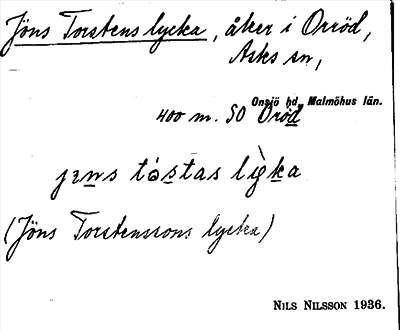 Jöns Torstens lycka, åker i Orröd,
Asks sn,
Onsjö hd, Malmöhus län.
400 m. SO Oröd
jɪns tóstas lỳka
(Jöns Torstenssons lycka)
NILS NILSSON 1936.